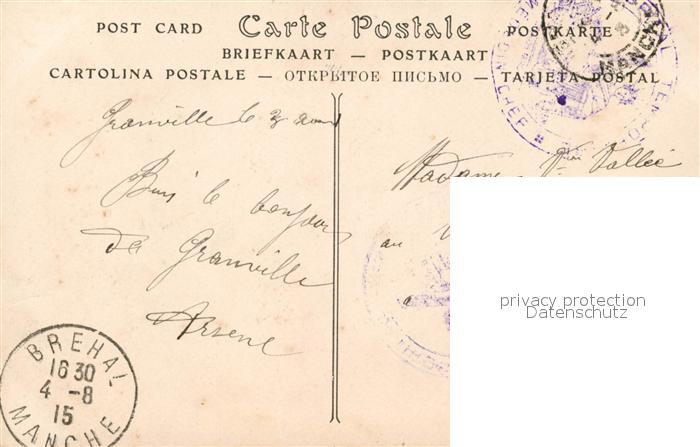 POST CARD Carte Postale POSTKARTE
BRIEFKAART — POSTKAART
CARTOLINA POSTALE — ОТКРЫТОЕ ПИСЬМО — TARJETA POSTAL
Granville le 3
le bonjour
de Granville
Arsene
Madame Vallée
au
a
MANCHE
BREHAL
16 30
4 - 8
15
MANCHE
privacy protection
Datenschutz